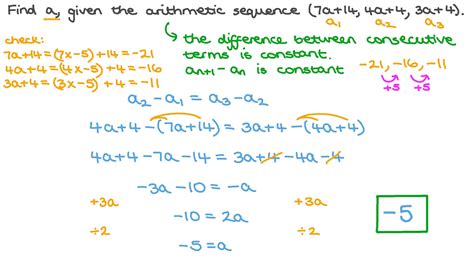 Find a, given the arithmetic sequence (7a+14, 4a+4, 3a+4).
a₁ a₂ a₃
check:
7a+14 = (7x-5)+14 = -21
4a+4 = (4x-5)+4 = -16
3a+4 = (3x-5)+4 = -11
the difference between consecutive
terms is constant.
aₙ₊₁ - aₙ is constant
-21, -16, -11
+5 +5
a₂ - a₁ = a₃ - a₂
4a+4 - (7a+14) = 3a+4 - (4a+4)
4a+4 - 7a - 14 = 3a+4 - 4a - 4
-3a - 10 = -a
+3a +3a
-10 = 2a
÷2 ÷2
-5 = a
-5